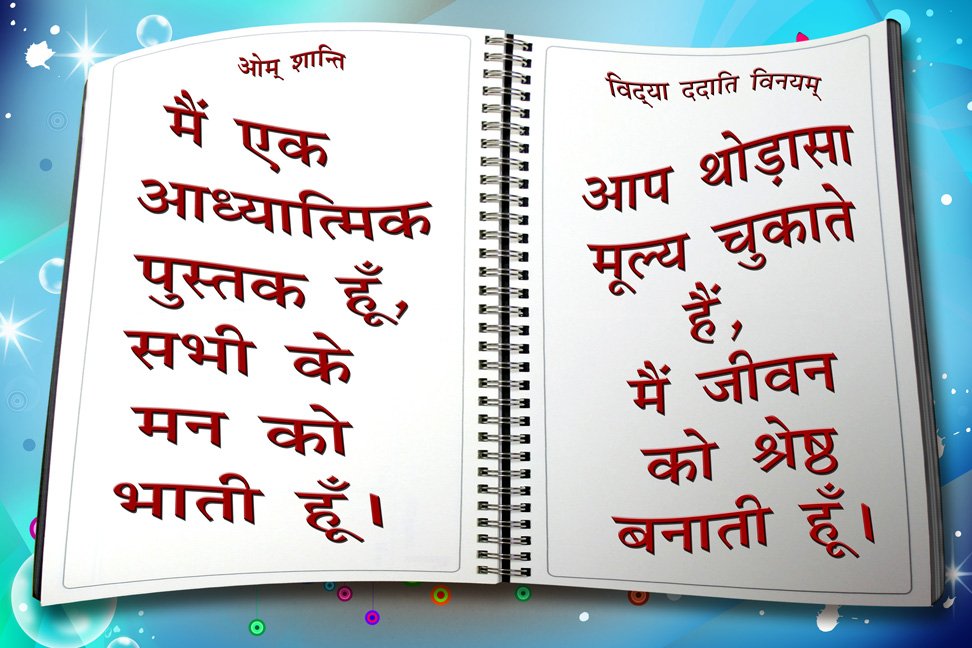 ओम् शान्ति
मैं एक
आध्यात्मिक
पुस्तक हूँ,
सभी के
मन को
भाती हूँ।
विद्‌या ददाति विनयम्
आप थोड़ासा
मूल्य चुकाते
हैं,
मैं जीवन
को श्रेष्ठ
बनाती हूँ।